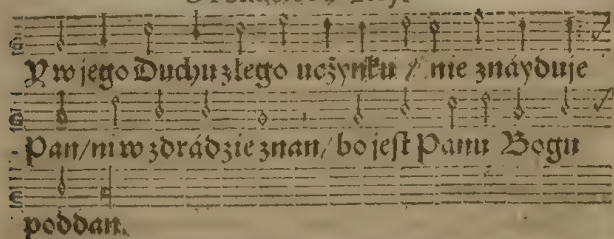 Y w jego Duchu złego uczynku / nie znáyduje
Pan / ni w zdrádzie znan / bo jest Panu Bogu
poddan.